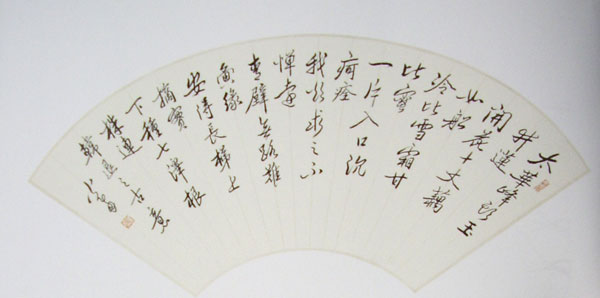 大華峰頭玉
井蓮
開花十丈藕
如船
冷比雪霜甘
比蜜
一片入口沉
痾痊
我欲求之不
憚遠
青壁無路難
夤緣
安得長梯上
摘實
下種七澤根
株連
韓退之古意